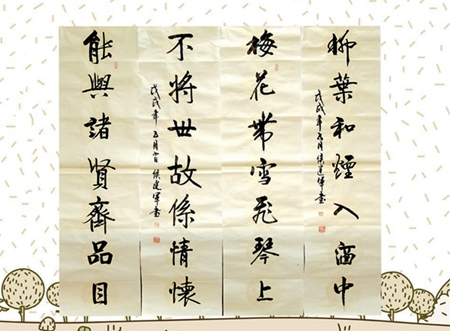 柳葉和煙入酒中
戊戌年五月侯建軍書
梅花帶雪飛琴上
不將世故係情懷
戊戌年五月侯建軍書
能與諸賢齊品目